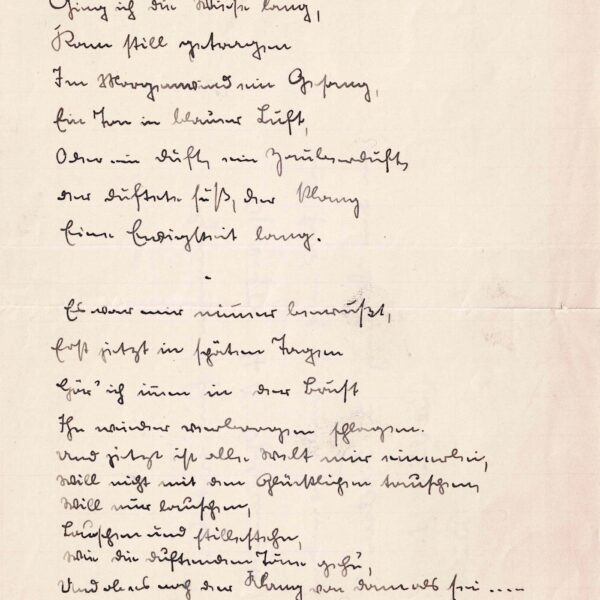 Ging ich die Wiese lang,
Kam still getragen
Im Morgenwind ein Gesang,
Ein Ton in blauer Luft,
Oder ein Duft, ein Zauberduft,
der duftete süß, der klang
Eine Ewigkeit lang.
Es war mir nim̅er bewußt,
Erst jetzt in späten Tagen
Hör' ich in̅en in der Brust
Ihn wieder verborgen schlagen.
Und jetzt ist alle Welt mir einerlei,
Will nicht mit den Glücklichen tauschen,
Will nur lauschen,
Lauschen und stillestehn,
Wie die duftenden Töne gehn,
Und ob es noch der Klang von damals sei ....